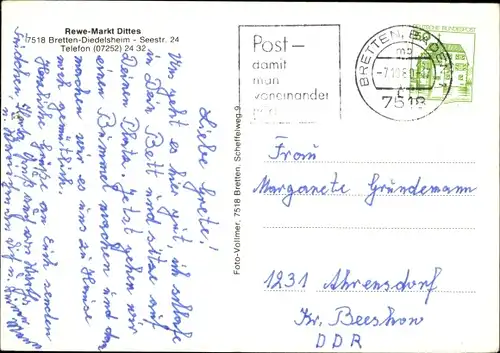 Rewe-Markt Dittes
7518 Bretten-Diedelsheim - Seestr. 24
Telefon (07252) 24 32
Liebe Grete!
Uns geht es hier gut, ich schlafe
in Dein Bett und sitze auf
Deinen Platz. Jetzt gehen wir
einen Bummel machen und dann
machen wir es uns zu Hause
noch gemütlich.
Herzliche Grüße an Euch senden
Foto-Vollmer, 7518 Bretten, Scheffelweg 9
Post –
damit
man
voneinander
hört
BRETTEN, BADEN
mb
7518
DEUTSCHE BUNDESPOST
Frau
Margarete Gründemann
1231 Ahrensdorf
Kr. Beeskow
DDR